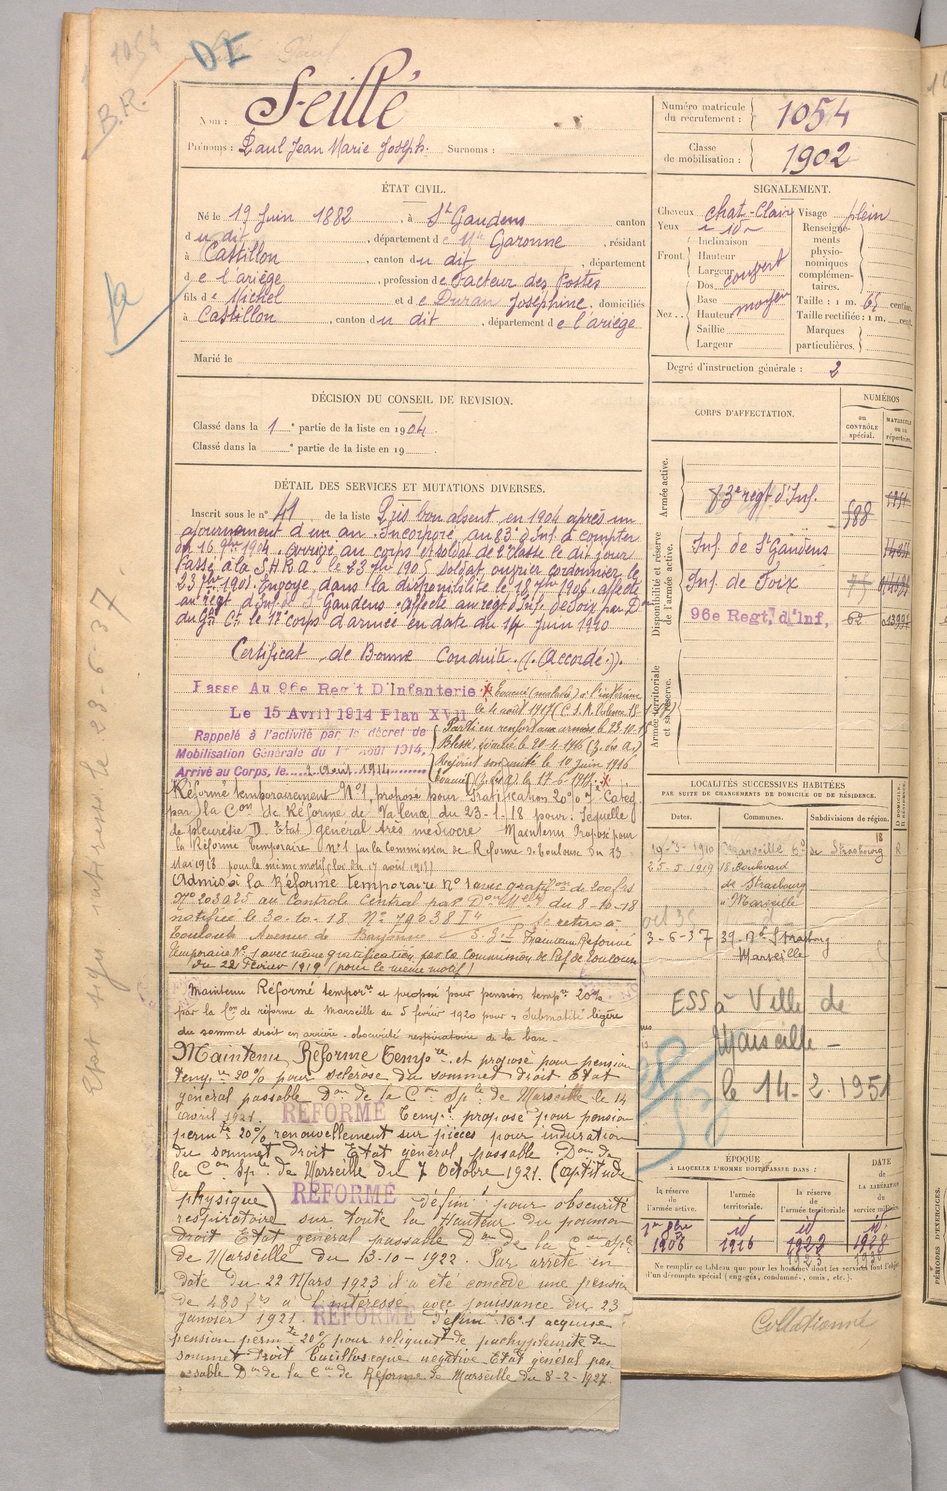 1054
DE
B.R.
Nom : Seillé
Prénoms : Paul Jean Marie Joseph. Surnoms :
Numéro matricule du recrutement : 1054
Classe de mobilisation : 1902
ÉTAT CIVIL.
Né le 19 Juin 1882, à St Gaudens canton
du dit, département de Hte Garonne, résidant
à Castillon, canton du dit, département
de l'ariège, profession de Facteur des Postes
fils de Michel et de Duran Joséphine, domiciliés
à Castillon, canton du dit, département de l'ariège
Marié le
SIGNALEMENT.
Cheveux chat-Clair Visage plein
Yeux
Front. Inclinaison
Hauteur
Largeur couvert
Nez. Dos
Base moyen
Hauteur
Saillie
Largeur
Renseignements physionomiques complémentaires.
Taille : 1 m. 65 centim.
Taille rectifiée : 1 m. cent.
Marques particulières.
Degré d'instruction générale : 2
DÉCISION DU CONSEIL DE REVISION.
Classé dans la 1e partie de la liste en 1904.
Classé dans la e partie de la liste en 19
DÉTAIL DES SERVICES ET MUTATIONS DIVERSES.
Inscrit sous le n° 41 de la liste Pris bon absent en 1904 après un
ajournement d'un an. Incorporé au 83e d'Inf à compter
du 16 9bre 1904. arrivé au corps et soldat de 2e classe le dit jour
Passé à la S.H.R. le 23 7bre 1905 soldat ouvrier cordonnier le
23 7bre 1905. Envoyé dans la disponibilité le 18 7bre 1906. affecté
au régt d'Inf de St Gaudens. Affecté au régt d'Inf. de Foix par Don
du Gal Ct le 17e corps d'armée en date du 14 Juin 1910
Certificat de Bonne Conduite. (accordé).
Passe Au 96e Reg't D'Infanterie
Le 15 Avril 1914 Plan XVII
Rappelé à l'activité par le décret de
Mobilisation Générale du 1er Août 1914.
Arrivé au Corps, le 2 Août 1914
Evacué (malade) à l'intérieur
le 4 août 1917 (C.S.R. Valence 18
Parti en renfort aux armées le 28-10-15
Blessé, évacué le 20-4-1916 (Z. des A)
Rejoint son unité le 10 juin 1916
Evacué (Z. des A) le 17-6-1917
Réformé temporairement N°1, proposé pour Gratification 20% Catég
par la Con de Réforme de Valence, du 23-1-18 pour: Séquelle
de pleurésie D. Etat général très médiocre Maintenu Proposé pour
la Réforme Temporaire n°1 par la Commission de Réforme de Toulouse du 13
Mai 1918 pour le même motif
Admis à la Réforme temporaire N°1 avec gratifon de 200 frs
N° 203025 au Contrôle Central par Don Melle du 8-10-18
notifiée le 30-10-18 N° 79638 Se retire à
Toulouse Avenue de Maintenu Réformé
temporaire N°1 avec même gratification par la Commission de Réf. de Toulouse
du 22 Février 1919 (pour le même motif)
Maintenu Réformé temporre et proposé pour pension tempre 20%
par la Con de réforme de Marseille du 5 février 1920 pour: Submatité légère
du sommet droit en arrière. obscurité respiratoire de la base.
Maintenu Réforme Tempore et proposé pour pension
tempre 20% pour sclérose du sommet droit Etat
général passable Don de la Con Sple de Marseille le 14
avril 1921. REFORMÉ Tempre proposé pour pension
permte 20% renouvellement sur pièces pour induration
du sommet droit Etat général passable Don de
la Con Sple de Marseille du 7 Octobre 1921. (aptitude
physique) REFORMÉ défini pour obscurité
respiratoire sur toute la Hauteur du poumon
droit Etat général passable Don de la Con sple
de Marseille du 13-10-1922. Par arrêté en
date du 22 Mars 1923 il a été concédé une pension
de 480 frs à l'intéressé avec jouissance du 23
janvier 1921. REFORMÉ défini N°1 acquise
pension permte 20% pour reliquat de pachypleurite du
sommet droit bacilloscopie négative Etat général pas
sable Don de la Con de Réforme de Marseille du 8-2-1927
CORPS D'AFFECTATION.
NUMÉROS
DU CONTRÔLE spécial.
MATRICULE OU DU répertoire.
Armée active.
83e régt d'Inf. 588
Disponibilité et réserve de l'armée active.
Inf. de St Gaudens
Inf. de Foix
96e Regt. d'Inf, 62
Armée territoriale et sa réserve.
LOCALITÉS SUCCESSIVES HABITÉES
PAR SUITE DE CHANGEMENTS DE DOMICILE OU DE RÉSIDENCE.
Dates. Communes. Subdivisions de région. D. DOMICILE. R. RÉSIDENCE.
19-3-1910 Marseille Bd de Strasbourg R
25-5-1919 18 Boulevard
de Strasbourg
Marseille
oct 35
3-5-37 39. Bd Strasbourg
Marseille
ESS à Ville de
Marseille -
le 14-2-1951
ÉPOQUE
À LAQUELLE L'HOMME DOIT PASSER DANS :
la réserve de l'armée active.
l'armée territoriale.
la réserve de l'armée territoriale
DATE de LA LIBÉRATION du service militaire
1er 8bre 1906
id 1916
id 1922 1923
id 1928
Ne remplir ce tableau que pour les hommes dont les services font l'objet
d'un décompte spécial (engagés, condamnés, omis, etc.).
Collationné
Etat signalétique le 23-6-37.
PÉRIODES D'EXERCICES.